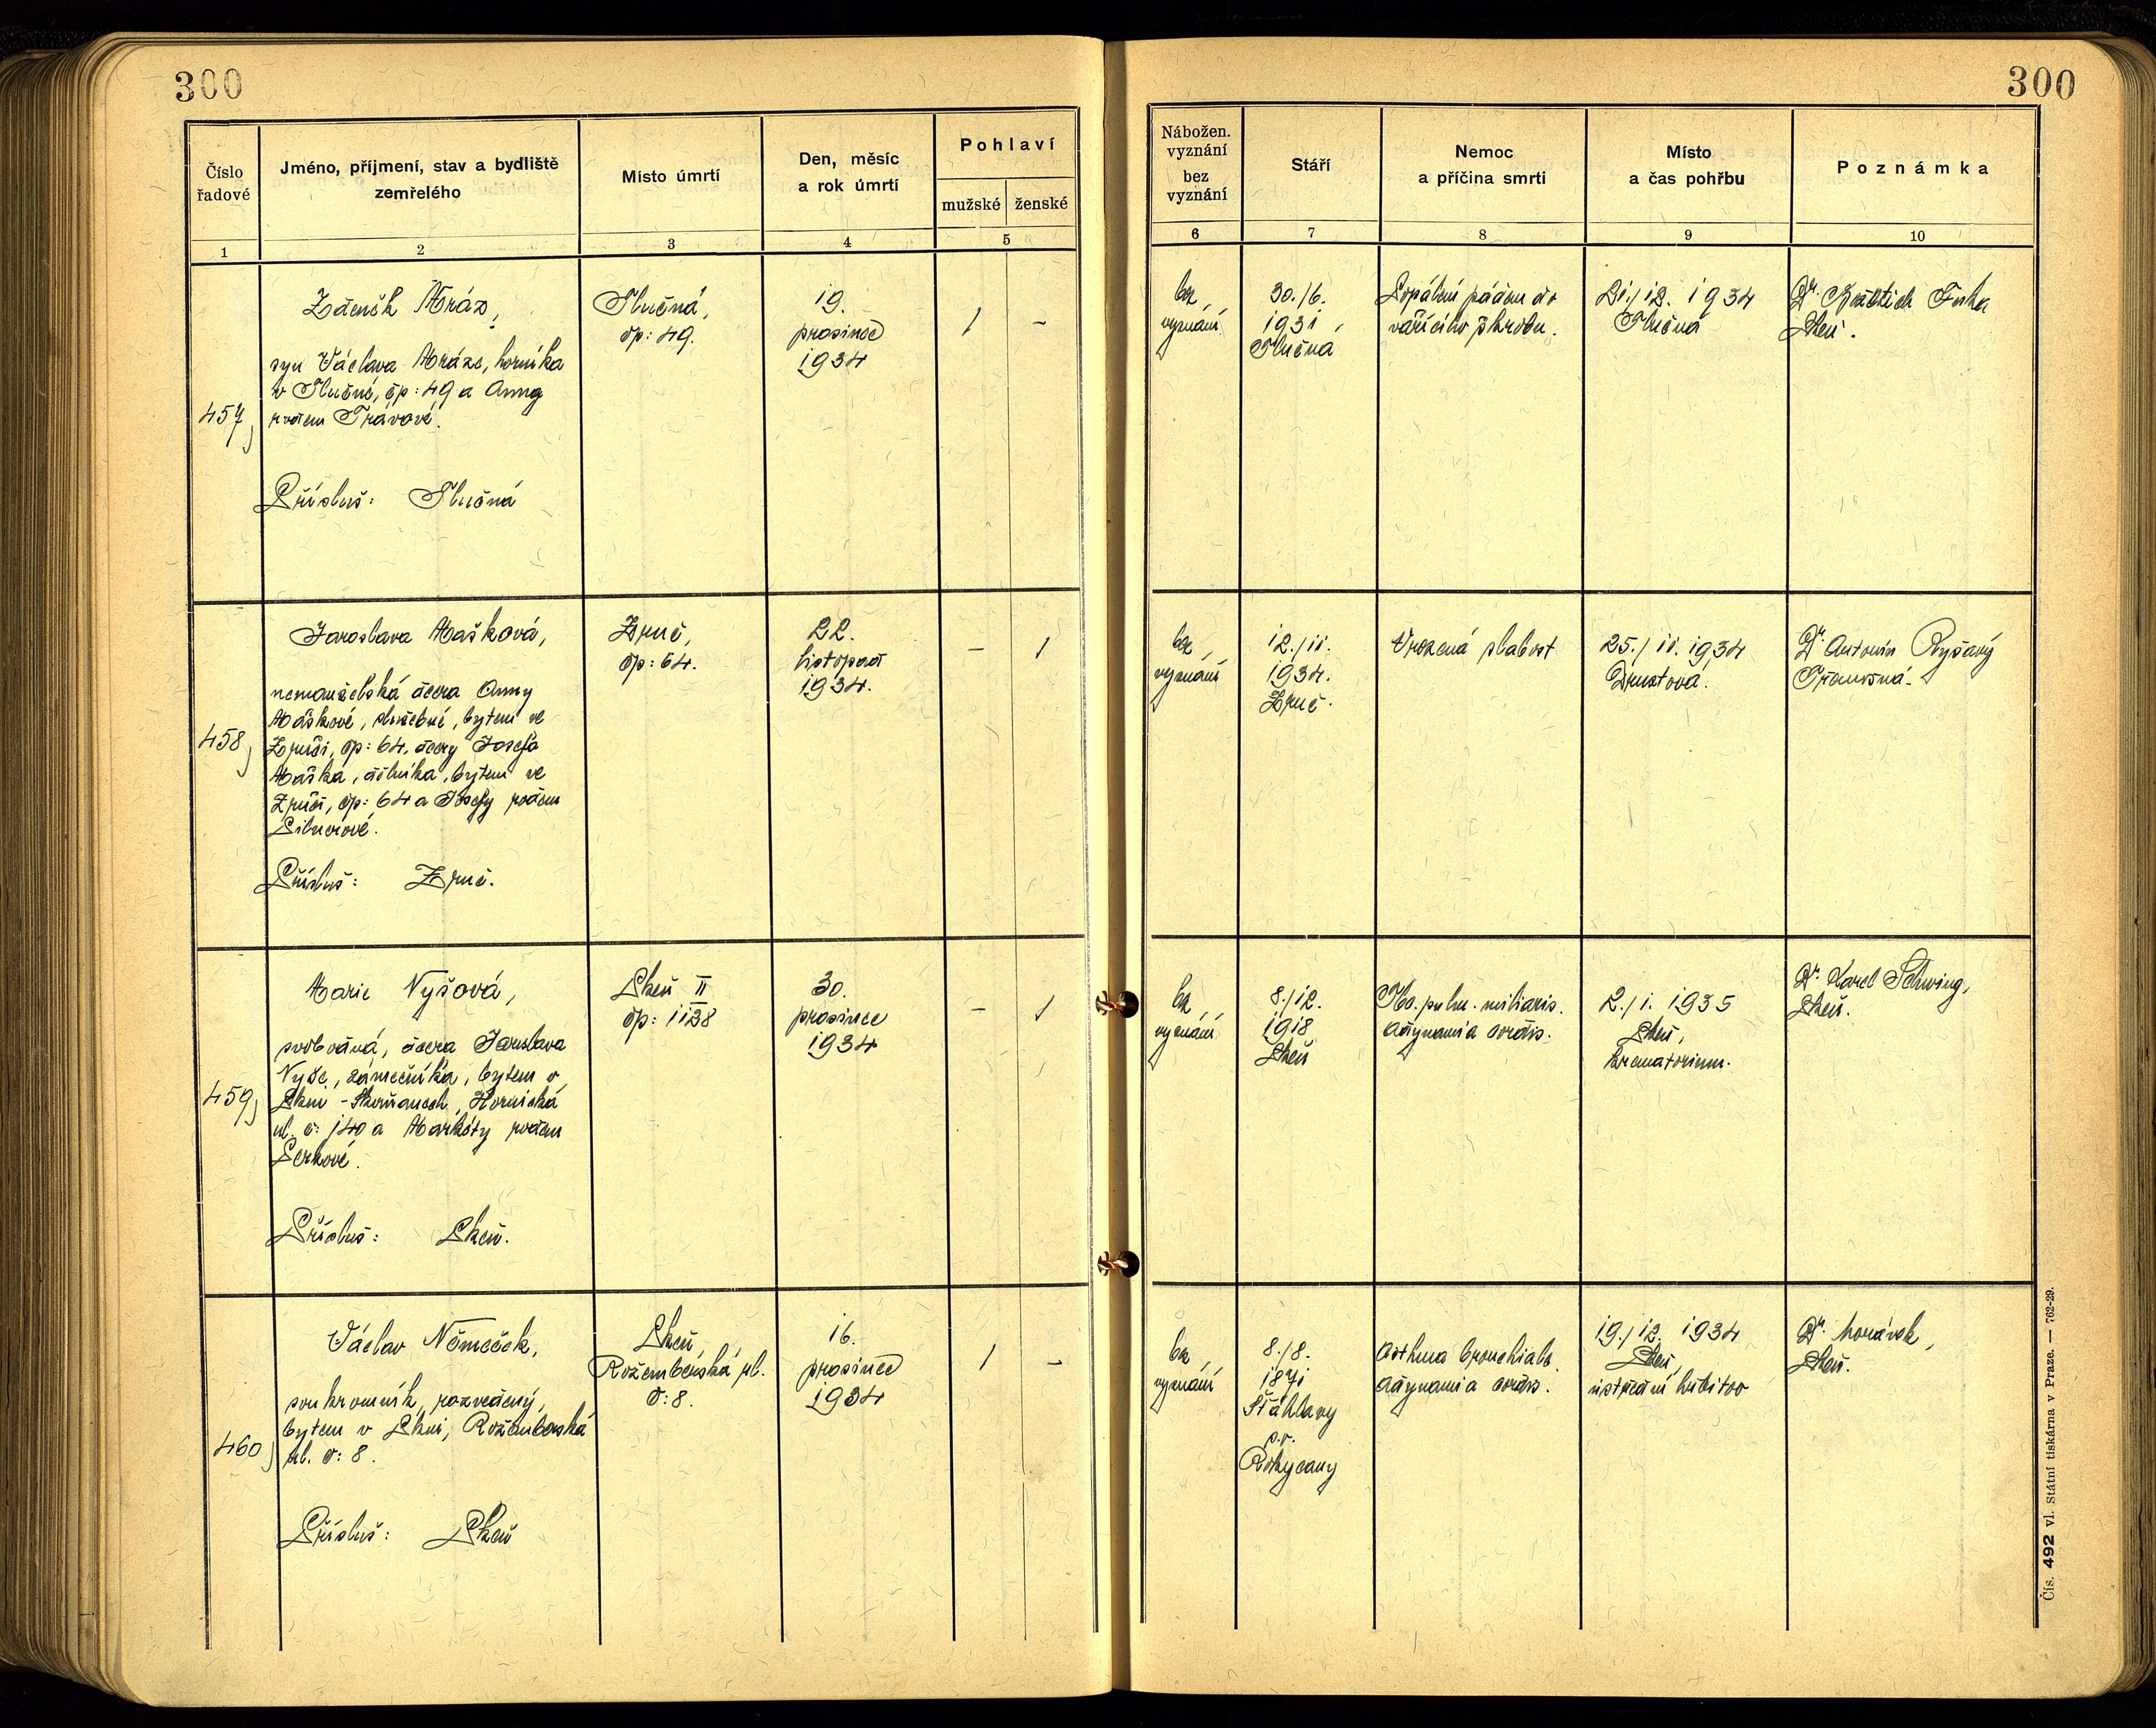 300
300
Číslo řadové
Jméno, příjmení, stav a bydliště zemřelého
Místo úmrtí
Den, měsíc a rok úmrtí
Pohlaví
mužské
ženské
Nábožen. vyznání
bez vyznání
Stáří
Nemoc a příčina smrti
Místo a čas pohřbu
Poznámka
1
2
3
4
5
6
7
8
9
10
457)
Zdeněk Mráz,
syn Václava Mráze, horníka
v Tlučné, čp: 49 a Anny
rodem Trávové.
Přísluš: Tlučná
Tlučná,
čp: 49.
19.
prosince
1934
1
-
bez
vyznání
30./6.
1931,
Tlučná
Popálení pádem do
vařícího škrobu.
21./12. 1934
Tlučná
Dr.
Plzeň.
458)
Jaroslava Mašková,
nemanželská dcera Anny
Maškové, služebné, bytem ve
Zruči, čp: 64, dcery Josefa
Maška, dělníka, bytem ve
Zruči, čp: 64 a Josefy rodem
Přísluš: Zruč.
Zruč,
čp: 64.
22.
listopad
1934.
-
1
bez
vyznání
12./11.
1934.
Zruč.
Vrozená slabost
25./11. 1934
Druztová.
Dr. Antonín Ryšavý
Třemošná.
459)
Marie Nyšová,
svobodná, dcera Jaroslava
Nyše, zámečníka, bytem v
Plzni - Skvrňanech, Hornická
ul. č: 140 a Markéty rodem
Přísluš: Plzeň.
Plzeň II
čp: 1128
30.
prosince
1934
-
1
bez
vyznání
8./12.
1918
Plzeň
Tbc. pulm. miliaris.
Adynamia cordis.
2./1. 1935
Plzeň,
krematorium.
Dr. Karel Schwing,
Plzeň.
460)
Václav Němeček,
soukromník, rozvedený,
bytem v Plzni, Rožmberská
ul. č: 8.
Přísluš: Plzeň
Plzeň,
Rožemberská ul.
č: 8.
16.
prosince
1934
1
-
bez
vyznání
8./8.
1871
Šťáhlavy
p.o.
Rokycany
Asthma bronchiale.
Adynamia cordis.
19./12. 1934
Plzeň,
ústřední hřbitov
Dr. Morávek,
Plzeň.
Čís. 492 vl. Státní tiskárna v Praze. — 762-29.